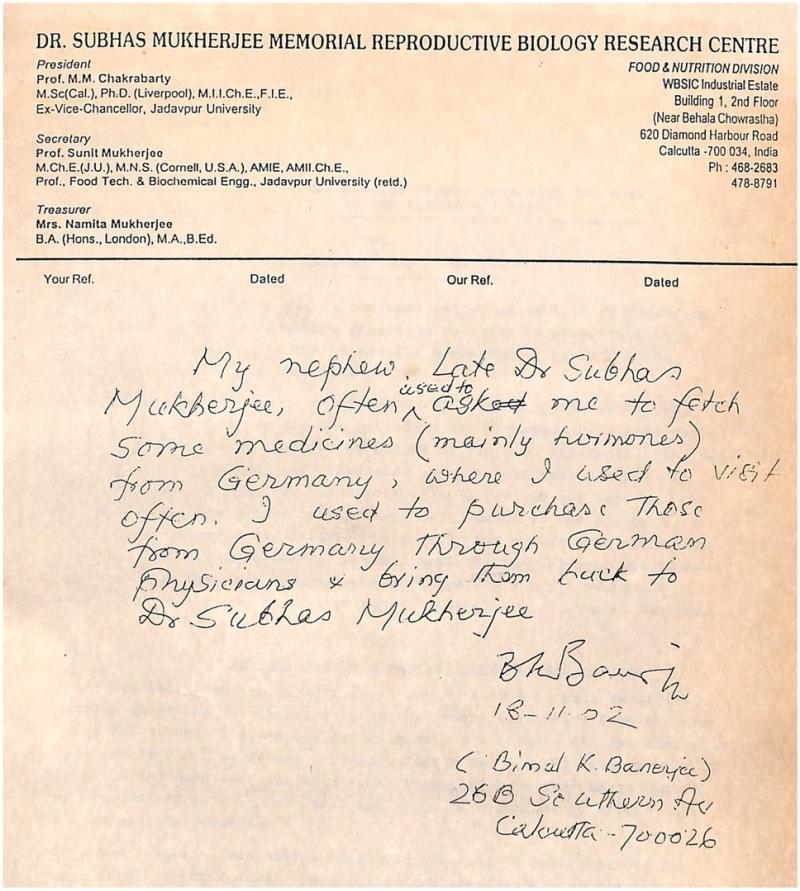 DR. SUBHAS MUKHERJEE MEMORIAL REPRODUCTIVE BIOLOGY RESEARCH CENTRE
President
Prof. M.M. Chakrabarty
M.Sc(Cal.), Ph.D. (Liverpool), M.I.I.Ch.E.,F.I.E.,
Ex-Vice-Chancellor, Jadavpur University
Secretary
Prof. Sunit Mukherjee
M.Ch.E.(J.U.), M.N.S. (Cornell, U.S.A.), AMIE, AMII.Ch.E.,
Prof., Food Tech. & Biochemical Engg., Jadavpur University (retd.)
Treasurer
Mrs. Namita Mukherjee
B.A. (Hons., London), M.A.,B.Ed.
FOOD & NUTRITION DIVISION
WBSIC Industrial Estate
Building 1, 2nd Floor
(Near Behala Chowrastha)
620 Diamond Harbour Road
Calcutta -700 034, India
Ph : 468-2683
478-8791
Your Ref. Dated Our Ref. Dated
My nephew, Late Dr Subhas
Mukherjee, often used to ask me to fetch
some medicines (mainly hormones)
from Germany, where I used to visit
often. I used to purchase those
from Germany through German
physicians & bring them back to
Dr Subhas Mukherjee
18-11-02
(Bimal K. Banerjee)
26B Southern Av
Calcutta-700026